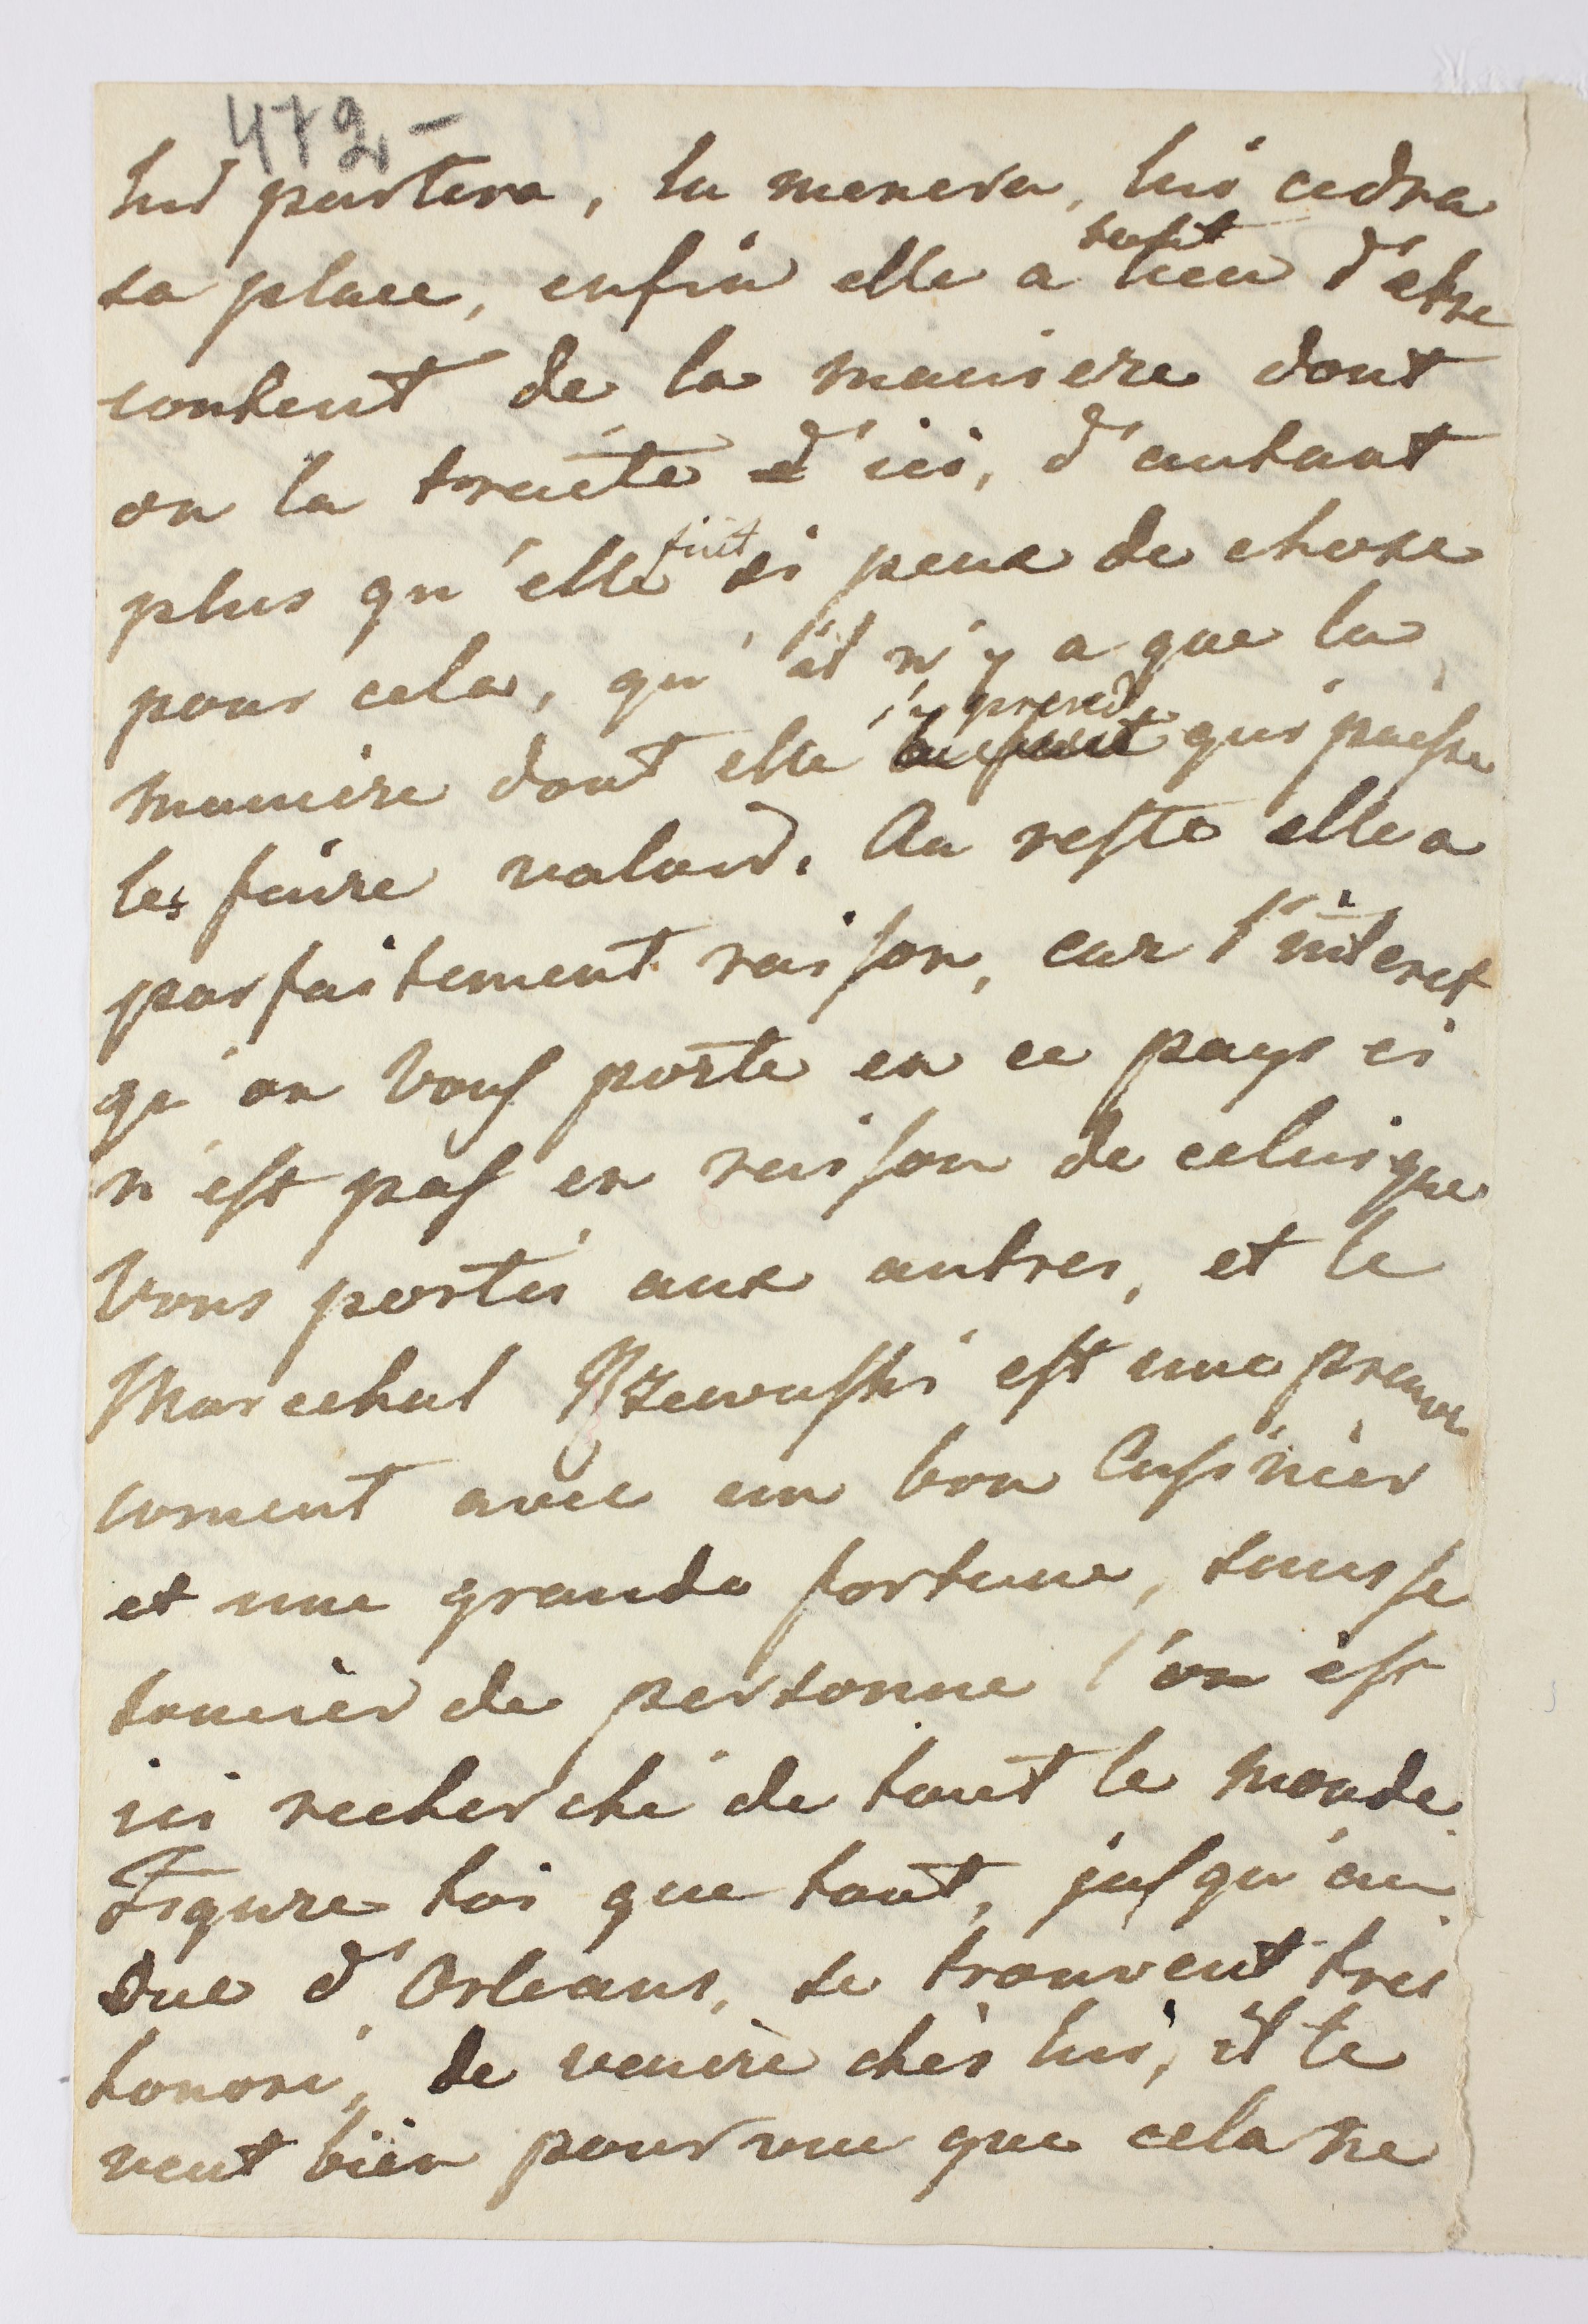 472.-
lui portera, la menera, lui cedra
sa place, enfin elle a tout lieu d'etre
content de la maniere dont
on la traite d'ici, d'autant
plus qu'elle fait si peux de chose
pour cela, qu'il n'y a que la
maniere dont elle s'y prend qui puisse
les faire valoir. Au reste elle a
parfaitement raison, car l'interet
qu'on Vous porte en ce pays ci
n'est pas en raison de celui que
Vous portés aux autres, et le
Marechal Rzewuski est une preuve
coment avec un bon Cusinier
et une grande fortune, sans se
soucier de personne l'on est
ici recherché de tout le monde.
Figure toi que tout, jusqu'au
Duc d'Orleans, se trouvent tres
honoré, de venire chès lui, il le
veut bien pourvue que cela ne